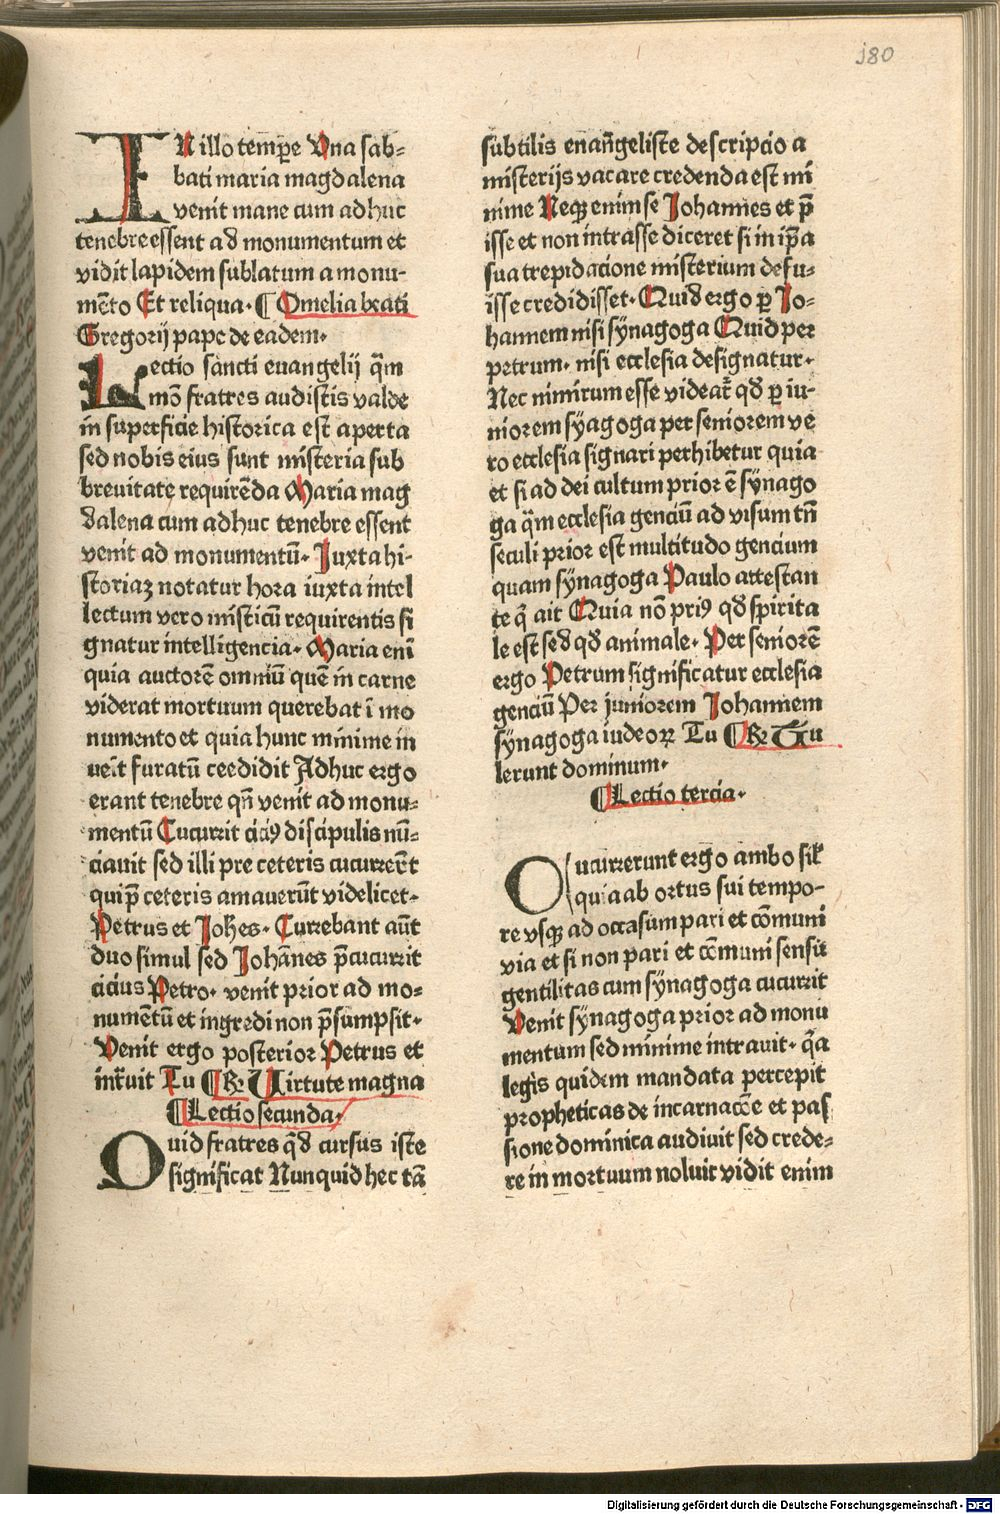 180
IN illo temꝑe Una sab-
bati maria magdalena
venit mane cum adhuc
tenebre essent ad monumentum et
vidit lapidem sublatum a monu-
mēto Et reliqua. ¶ Omelia beati
Gregorij pape de eadem.
Lectio sancti euangelij q̄m
mō fratres audistis valde
in superficie historica est aperta
sed nobis eius sunt misteria sub
breuitate requirēda Maria mag
dalena cum adhuc tenebre essent
venit ad monumentū. Juxta hi-
storiaꝫ notatur hora iuxta intel
lectum vero misticū requirentis si
gnatur intelligencia. Maria enī
quia auctorē omniū quē in carne
viderat mortuum querebat ī mo
numento et quia hunc minime in
venīt furatū ceedidit Adhuc ergo
erant tenebre qn̄ venit ad monu-
mentū Cucurrit citiꝰ discipulis nū-
ciauit sed illi pre ceteris cucurrerūt
qui p̄ ceteris amauerūt videlicet.
Petrus et Joħes. Currebant aūt
duo simul sed Johānes p̄cucurrit
cicius Petro. venit prior ad mo-
numētū et ingredi non p̄sumpsit.
Venit ergo posterior Petrus et
intᷣuit Tu ¶ R̄ Uirtute magna
¶ Lectio secunda.
Quid fratres q̄d cursus iste
significat Nunquid hec tā
subtilis enan̄geliste descripcio a
misterijs vacare credenda est mi
nime Neqꝫ enim se Johannes et p̄
isse et non intrasse diceret si in ip̄a
sua trepidacione misterium defu-
isse credidisset. Quid ergo ꝑ Jo-
hannem nisi synagoga Quid per
petrum. nisi ecclesia designatur.
Nec nimirum esse videatᷣ qd̄ ꝑ iu-
niorem synagoga per seniorem ve
ro ecclesia signari perhibetur quia
et si ad dei cultum prior ē synago
ga q̄m ecclesia genciū ad visum tn̄
seculi prior est multitudo gencium
quam synagoga Paulo attestan
te q̄ ait Quia nō priꝰ qd̄ spirita
le est sed qd̄ animale. Per seniorē
ergo Petrum significatur ecclesia
genciū Per juniorem Johannem
synagoga iudeoꝝ Tu ¶ R̄ Tu
lerunt dominum.
¶ Lectio tercia.
Cucurrerunt ergo ambo sil̄
quia ab ortus sui tempo-
re vsqꝫ ad occasum pari et cōmuni
via et si non pari et cōmuni sensu
gentilitas cum synagoga cucurrit
Venit synagoga prior ad monu
mentum sed minime intrauit. q̄a
legis quidem mandata percepit
propheticas de incarnacōe et pas
sione dominica audiuit sed crede-
re in mortuum noluit vidit enim
Digitalisierung gefördert durch die Deutsche Forschungsgemeinschaft - DFG